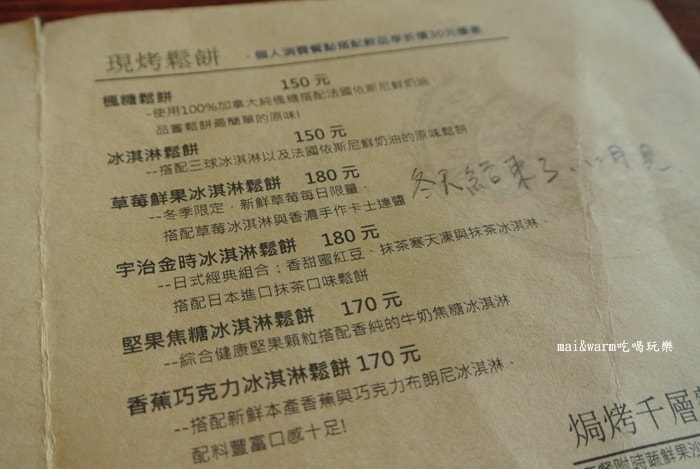 現烤鬆餅 ·個人消費餐點搭配飲品享折價30元優惠
楓糖鬆餅 150 元
-使用100%加拿大純楓糖搭配法國依斯尼鮮奶油，
品嘗鬆餅最簡單的原味!
冰淇淋鬆餅 150 元
--搭配三球冰淇淋以及法國依斯尼鮮奶油的原味鬆餅
草莓鮮果冰淇淋鬆餅 180 元
--冬季限定．新鮮草莓每日限量．
搭配草莓冰淇淋與香濃手作卡士達醬
冬天結束了 12月見
宇治金時冰淇淋鬆餅 180 元
--日式經典組合：香甜蜜紅豆、抹茶寒天凍與抹茶冰淇淋．
搭配日本進口抹茶口味鬆餅
堅果焦糖冰淇淋鬆餅 170 元
--綜合健康堅果顆粒搭配香純的牛奶焦糖冰淇淋
香蕉巧克力冰淇淋鬆餅 170 元
--搭配新鮮本產香蕉與巧克力布朗尼冰淇淋．
配料豐富口感十足!
mai&warm吃喝玩樂
焗烤千層
附時蔬鮮果沙